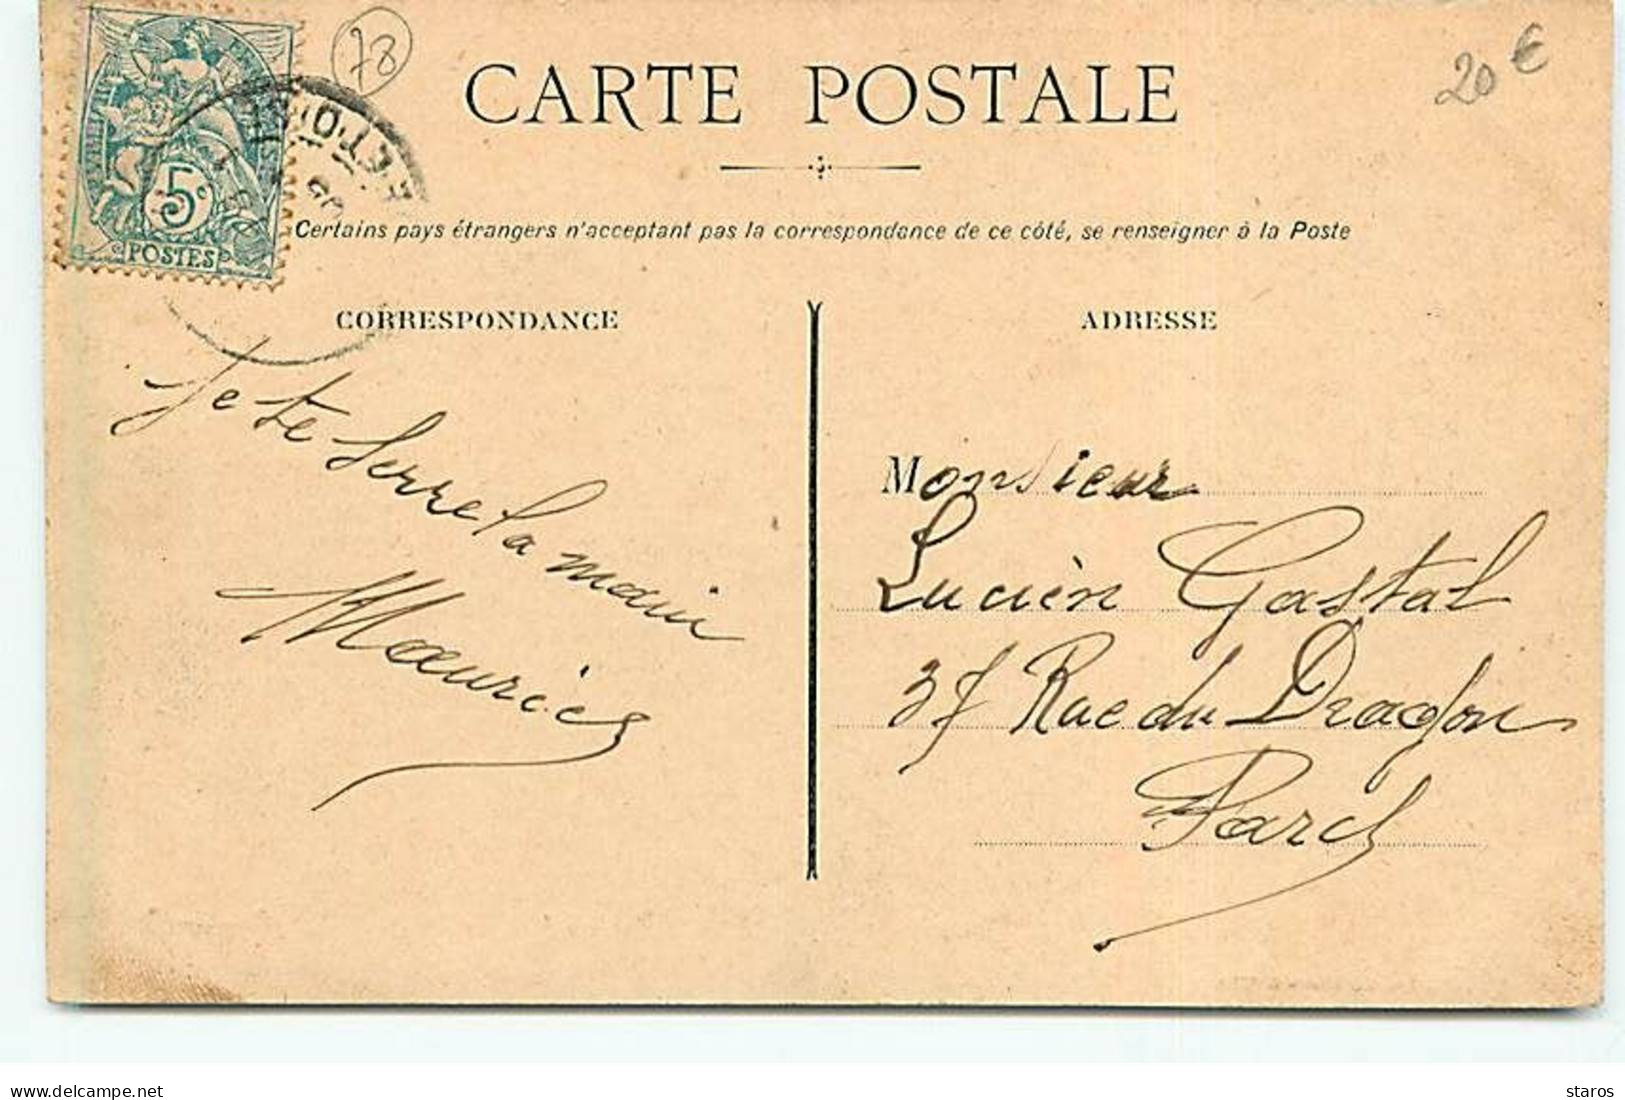 78
CARTE POSTALE
20 €
5c
POSTES
Certains pays étrangers n'acceptant pas la correspondance de ce côté, se renseigner à la Poste
CORRESPONDANCE
ADRESSE
Je te serre la main
Maurice
Monsieur
Lucien Gastal
37 Rue du Dragon
Paris
www.delcampe.net
staros